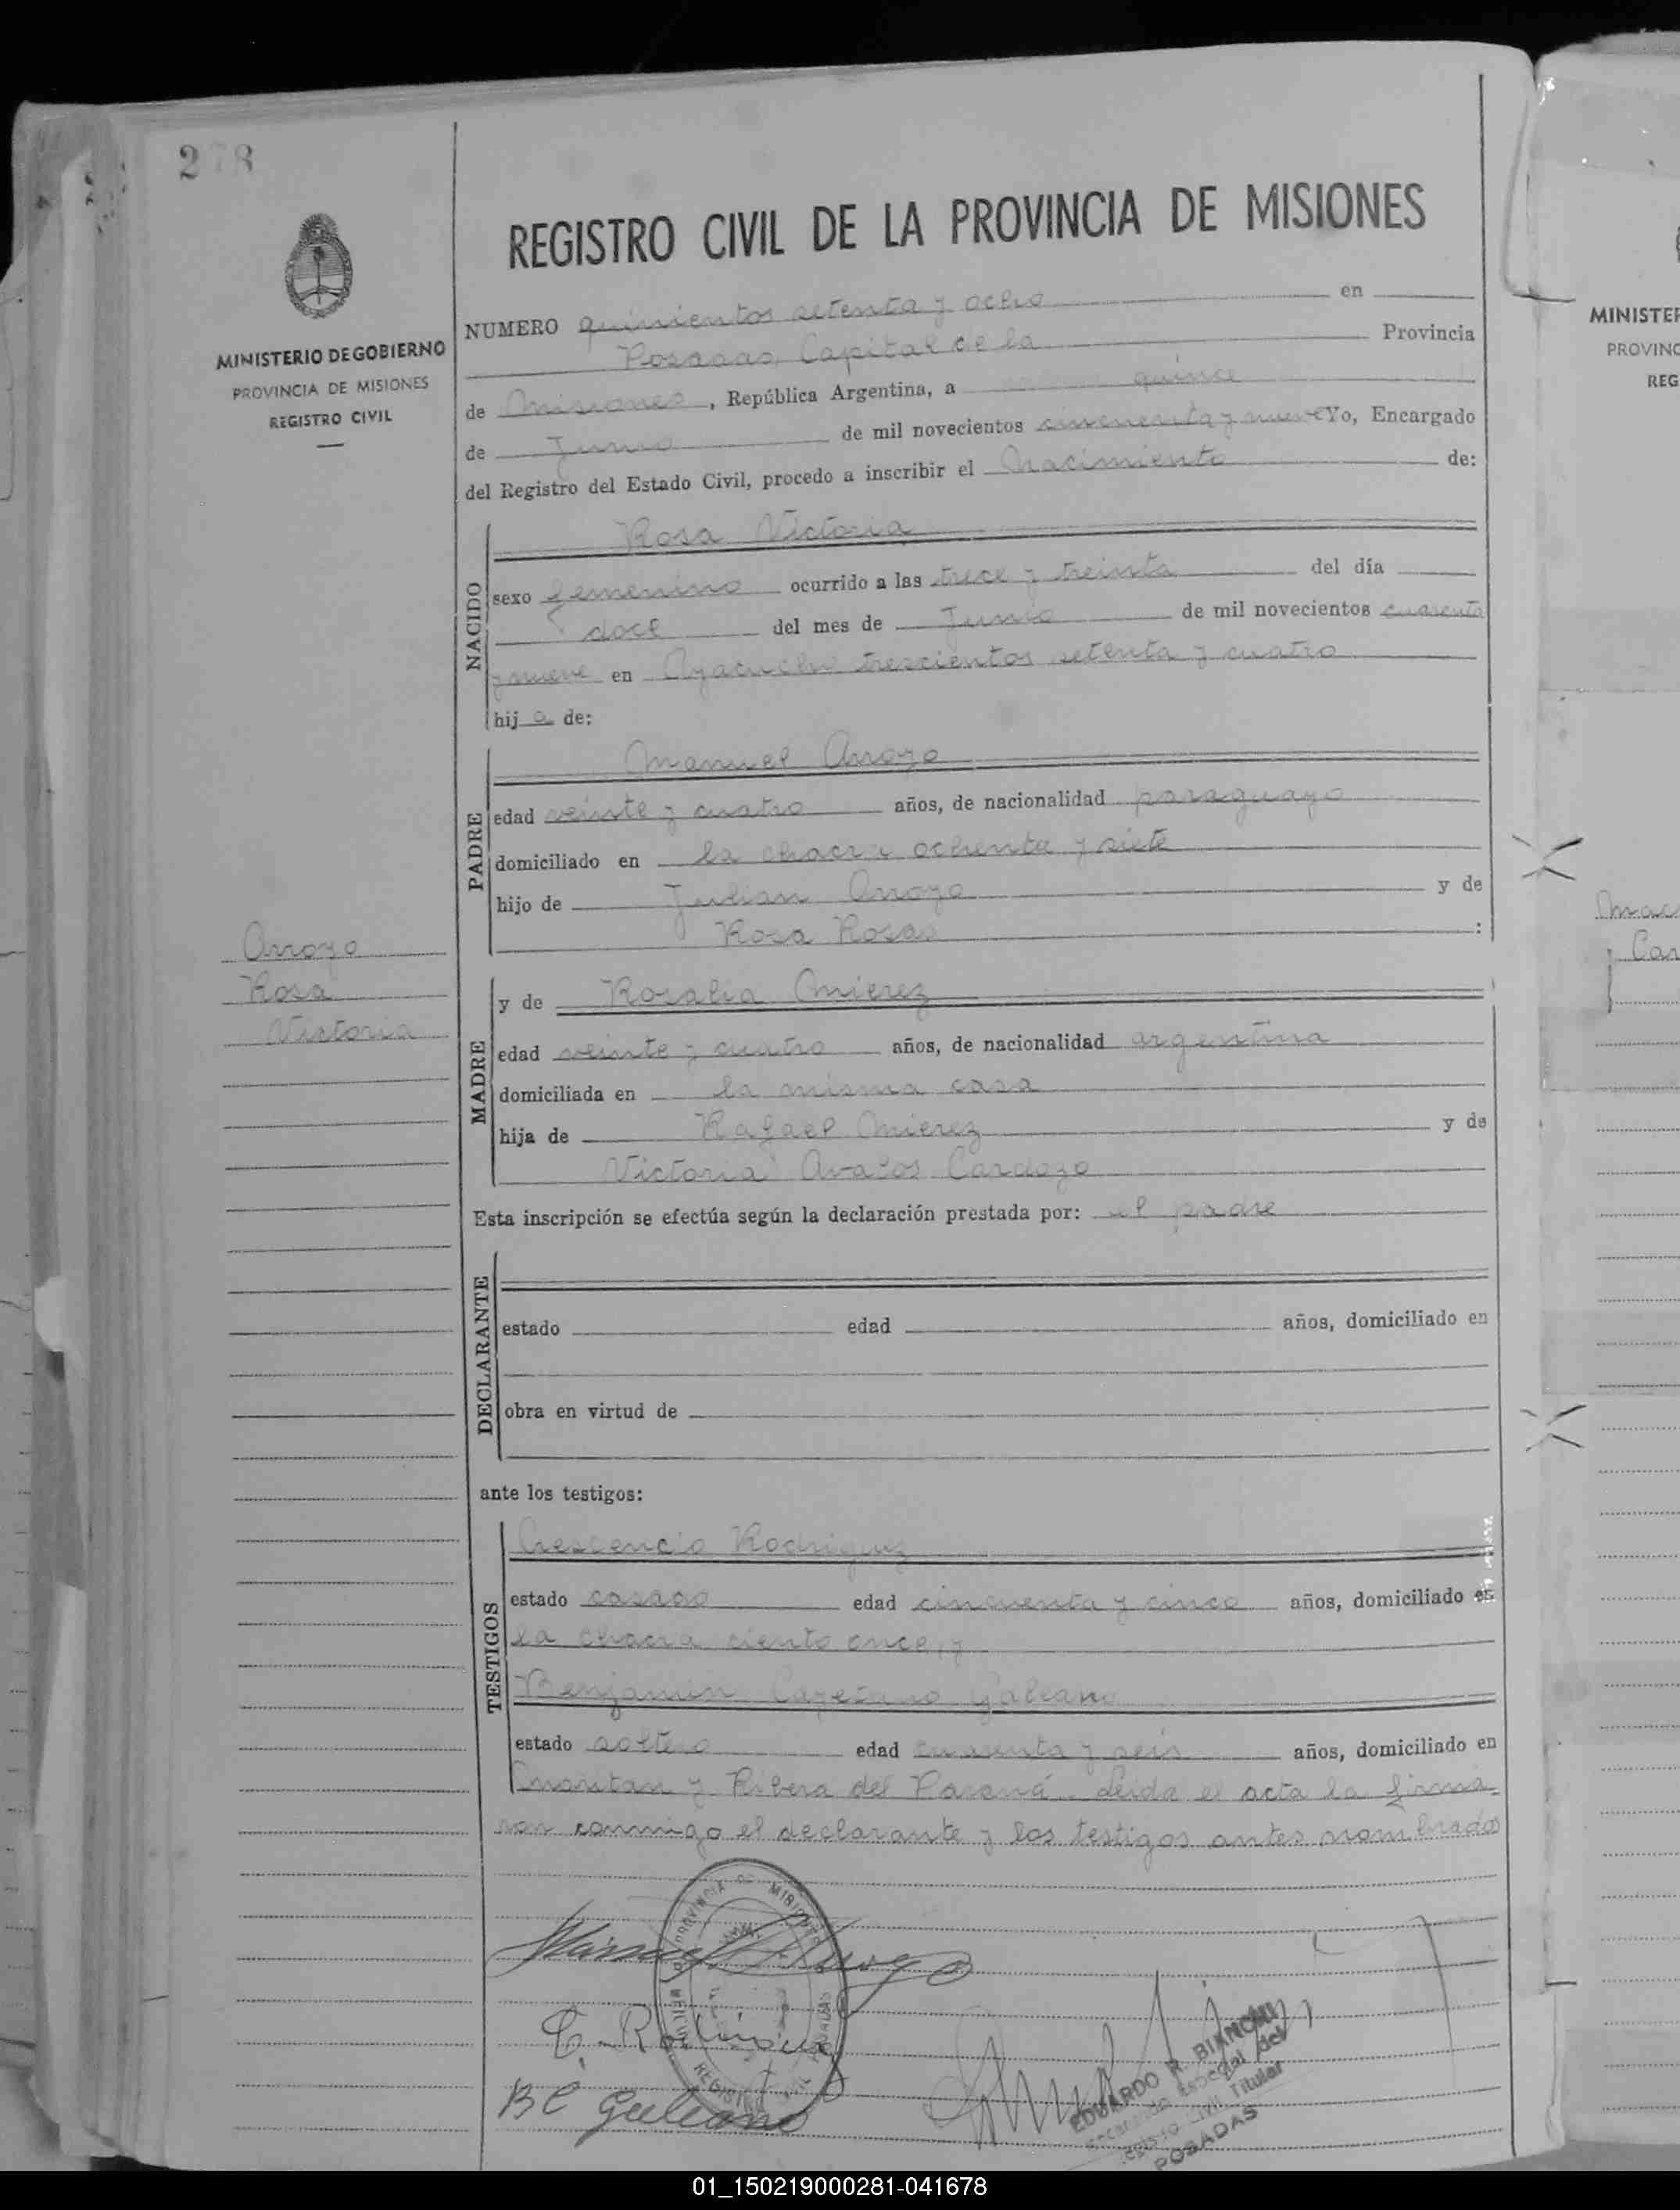 278
REGISTRO CIVIL DE LA PROVINCIA DE MISIONES
MINISTERIO DE GOBIERNO
PROVINCIA DE MISIONES
REGISTRO CIVIL
NUMERO quinientos setenta y ocho en
Posadas, Capital de la Provincia
de Misiones, República Argentina, a quince
de Junio de mil novecientos cincuenta y nueve Yo, Encargado
del Registro del Estado Civil, procedo a inscribir el Nacimiento de:
NACIDO
Rosa Victoria
sexo femenino ocurrido a las trece y treinta del día
doce del mes de Junio de mil novecientos cuarenta
y nueve en Ayacucho trescientos setenta y cuatro
hij a de:
PADRE
Manuel Arroyo
edad veinte y cuatro años, de nacionalidad paraguayo
domiciliado en la chacra ochenta y siete
hijo de Julian Arroyo y de
Rosa Rosas :
Arroyo
Rosa
Victoria
MADRE
y de Rosalia Mierez
edad veinte y cuatro años, de nacionalidad argentina
domiciliada en la misma casa
hija de Rafael Mierez y de
Victoria Avalos Cardozo
Esta inscripción se efectúa según la declaración prestada por: el padre
DECLARANTE
estado edad años, domiciliado en
obra en virtud de
ante los testigos:
TESTIGOS
Crescencio Rodriguez
estado casado edad cincuenta y cinco años, domiciliado en
la chacra ciento once, y
Benjamin Cayetano Galeano
estado soltero edad cuarenta y seis años, domiciliado en
y Ribera del Paraná. Leida el acta la firma-
ron conmigo el declarante y los testigos antes nombrados
Manuel Arroyo
C. Rodriguez
B C Galeano
PROVINCIA DE MISIONES
REGISTRO CIVIL
POSADAS
EDUARDO R. BIANCHI
Encargado Especial del
Registro Civil Titular
POSADAS
MINISTER
PROVINC
REG
Car
01_150219000281-041678